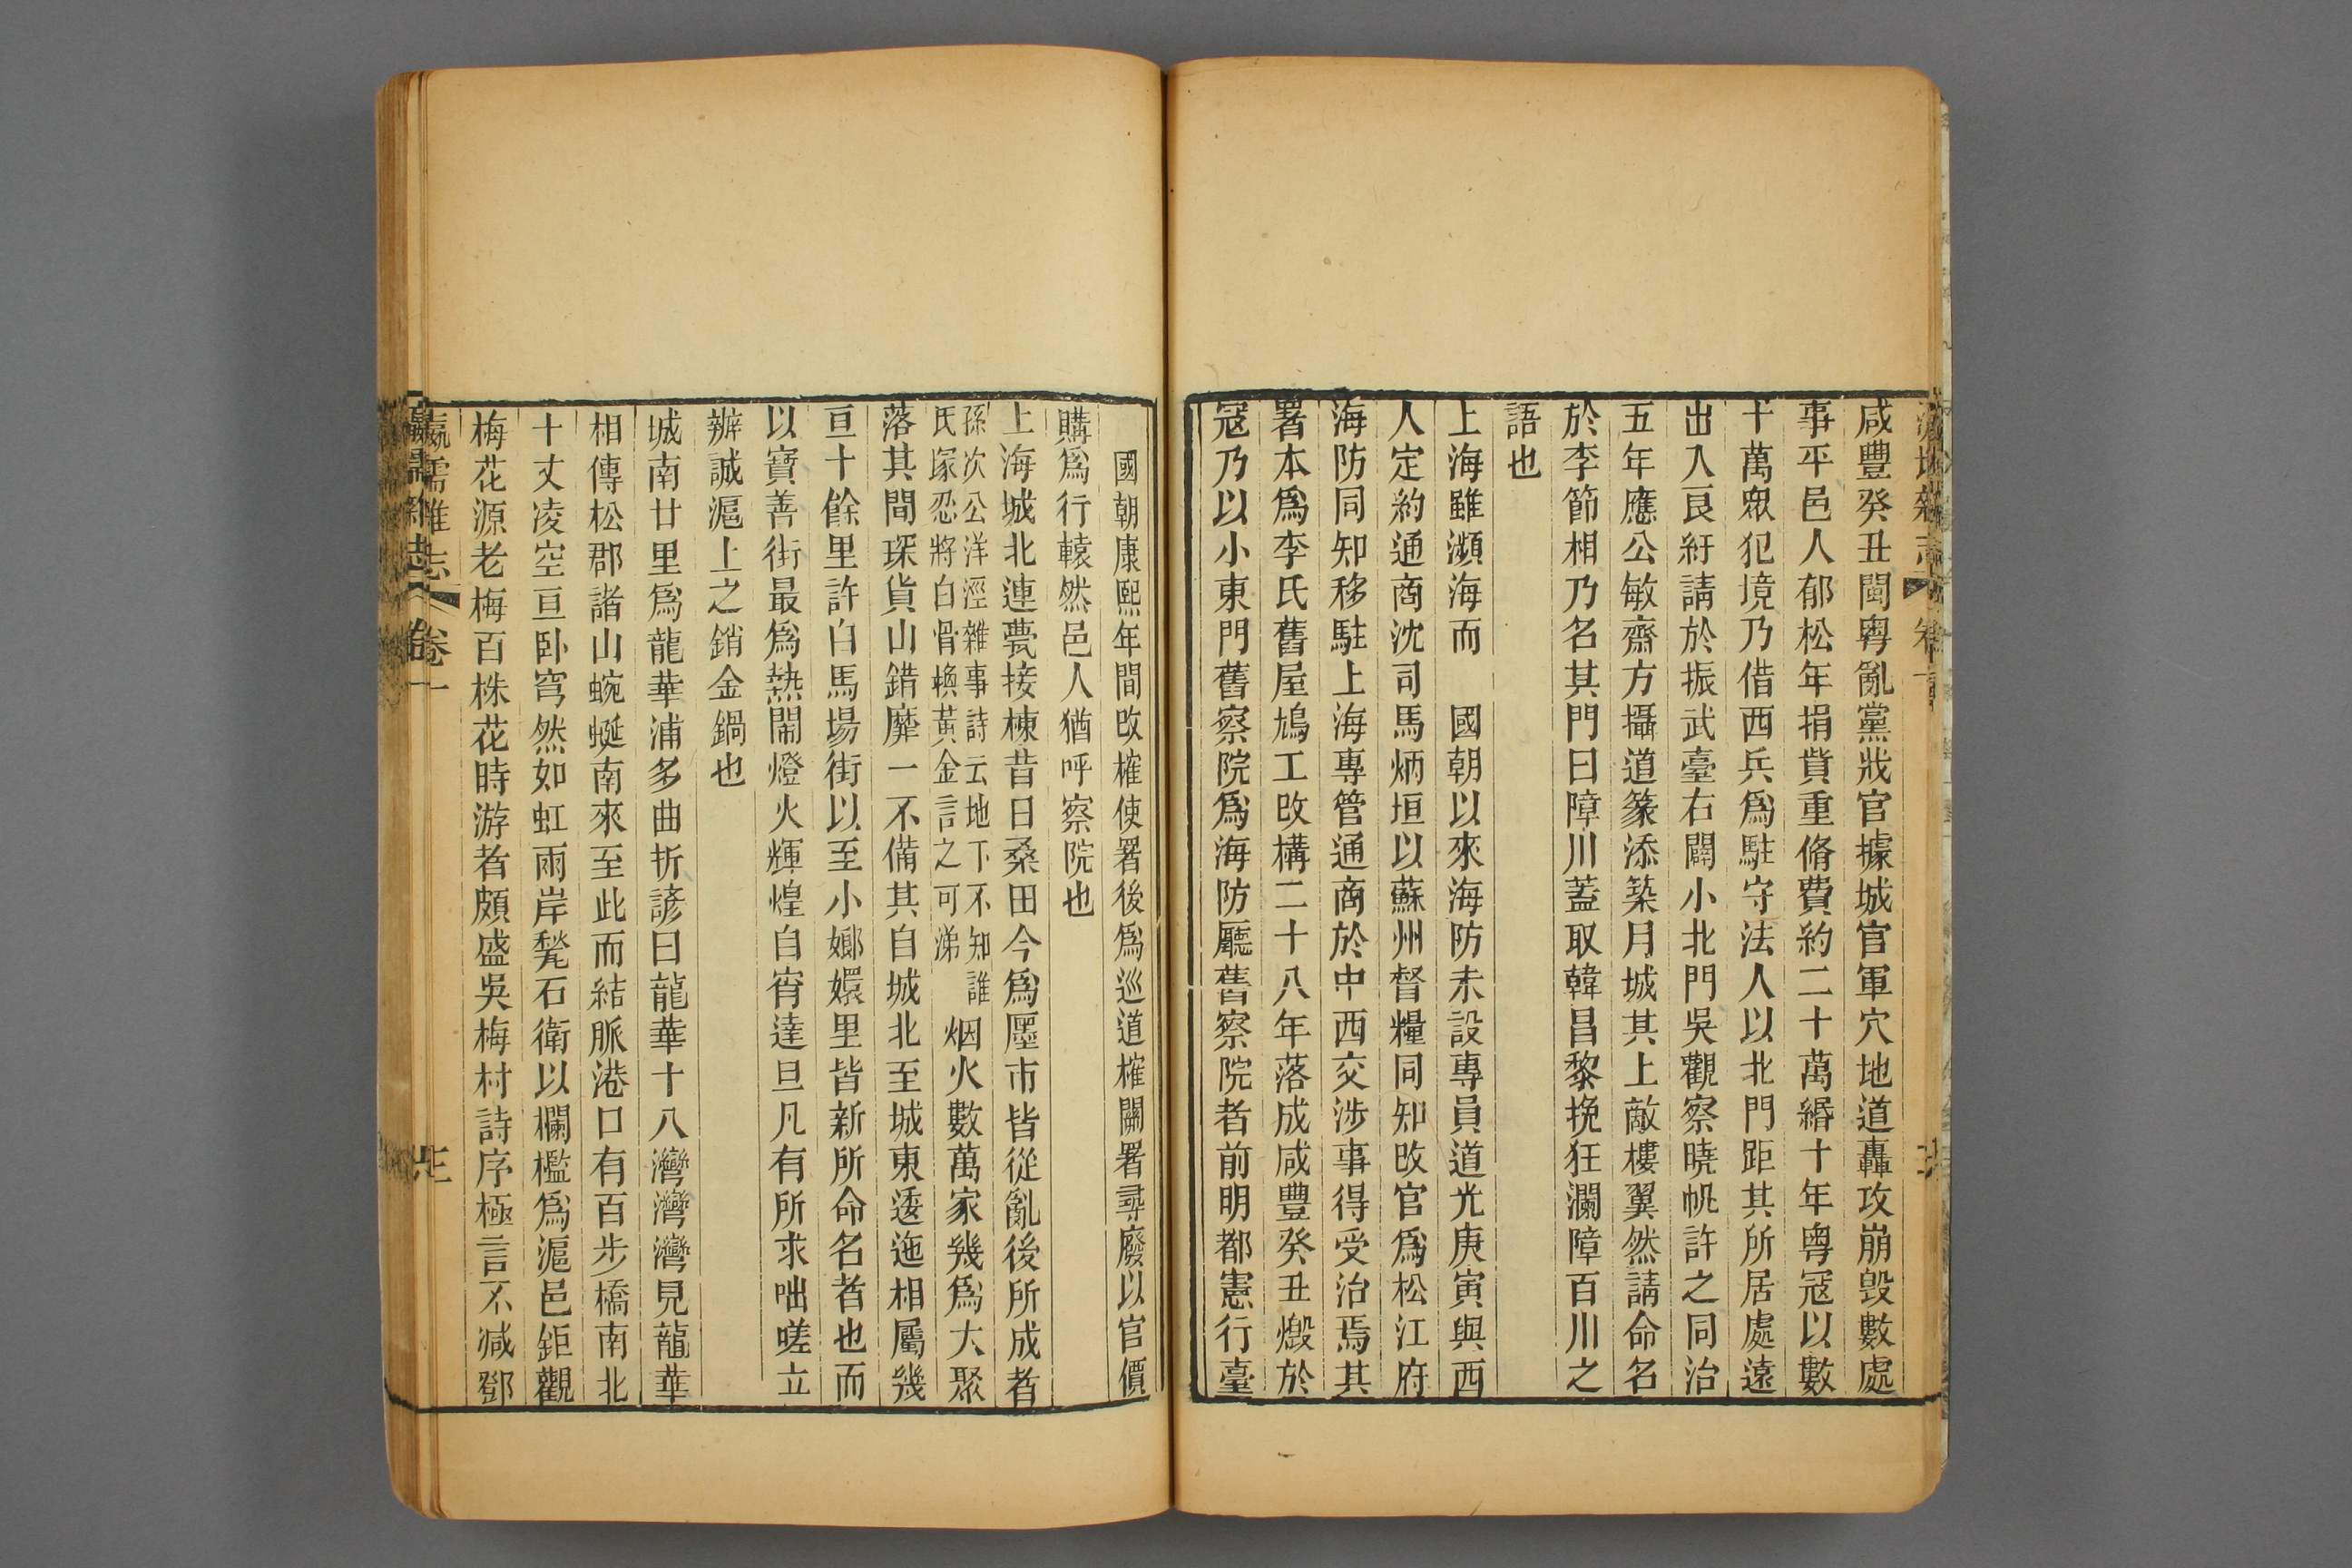 咸豐癸丑閩粵亂黨戕官據城官軍穴地道轟攻崩毀數處
事平邑人郁松年捐貲重脩費約二十萬緡十年粵冦以數
十萬眾犯境乃借西兵爲駐守法人以北門距其所居處遠
出入艮紆請於振武臺右闢小北門吳觀察曉帆許之同治
五年應公敏齋方攝道篆添築月城其上敵樓翼然請命名
於李節相乃名其門曰障川蓋取韓昌黎挽狂瀾障百川之
語也
上海雖瀕海而　國朝以來海防未設專員道光庚寅與西
人定約通商沈司馬炳垣以蘇州督糧同知改官爲松江府
海防同知移駐上海專管通商於中西交涉事得受治焉其
署本爲李氏舊屋鳩工改構二十八年落成咸豐癸丑燬於
冦乃以小東門舊察院爲海防廳舊察院者前明都憲行臺
國朝康熙年間改榷使署後爲巡道榷關署尋廢以官價
購爲行轅然邑人猶呼察院也
上海城北連甍接棟昔日桑田今爲廛市皆從亂後所成者
孫次公洋涇雜事詩云地下不知誰
氏塚忍將白骨換黃金言之可涕
烟火數萬家幾爲大聚
落其間琛貨山錯靡一不備其自城北至城東逶迤相屬幾
亘十餘里許白馬場街以至小嫏嬛里皆新所命名者也而
以寶善街最爲熱鬧燈火輝煌自宵達旦凡有所求咄嗟立
辦誠滬上之銷金鍋也
城南廿里爲龍華浦多曲折諺曰龍華十八灣灣灣見龍華
相傳松郡諸山蜿蜒南來至此而結脈港口有百步橋南北
十丈凌空亘臥穹然如虹兩岸甃石衛以欄檻爲滬邑鉅觀
梅花源老梅百株花時游者頗盛吳梅村詩序極言不減鄧
瀛壖雜志 卷一